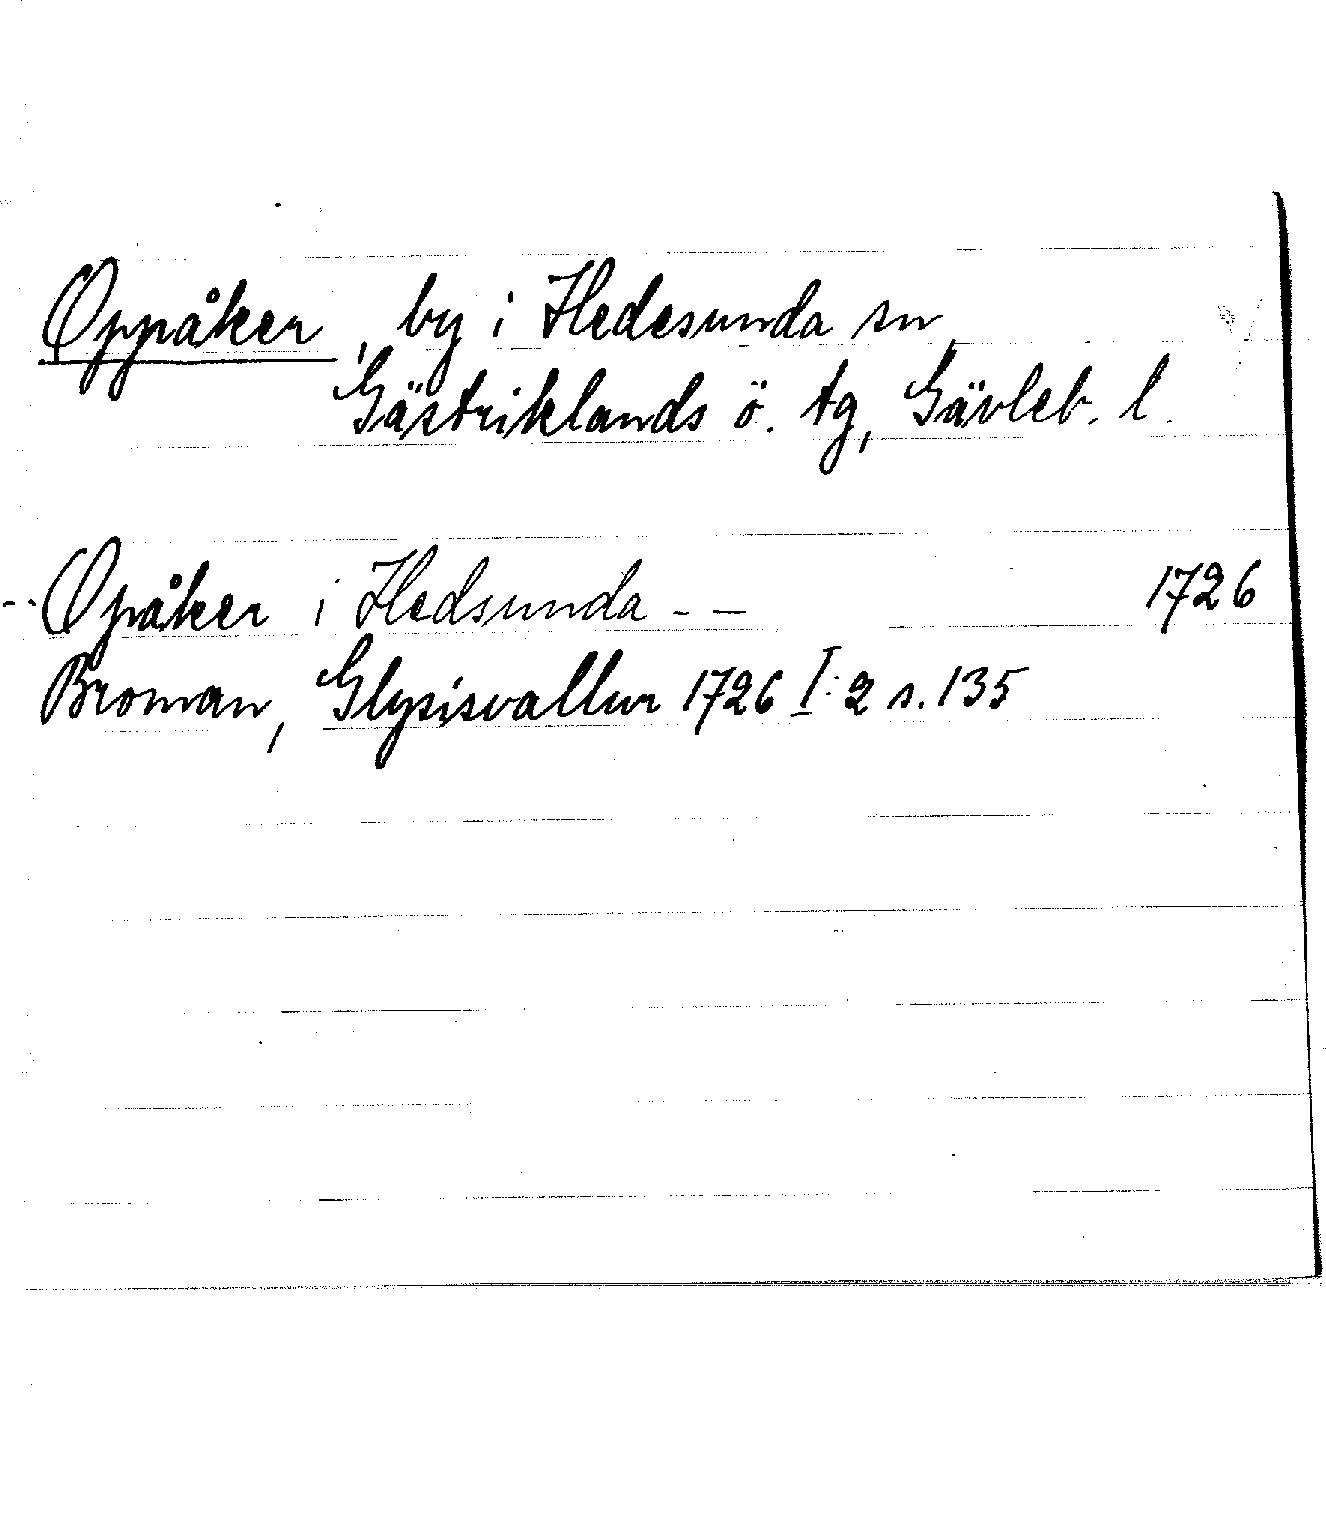 Oppåker, by i Hedesunda sn
Gästriklands ö. tg, Gävleb. l.
-- Opåker i Hedsunda - - 1726
Broman, Glysisvallur 1726 I:2 s. 135